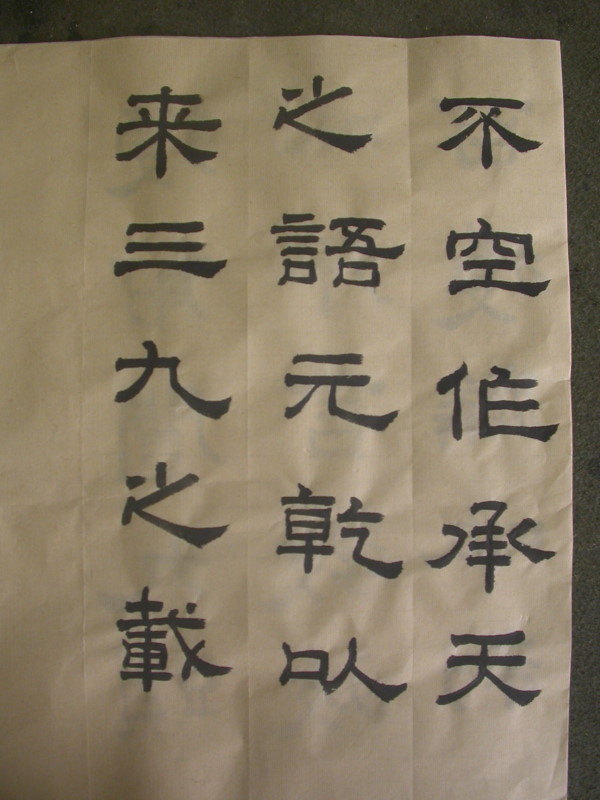 不空作承天
之語元乾以
来三九之載